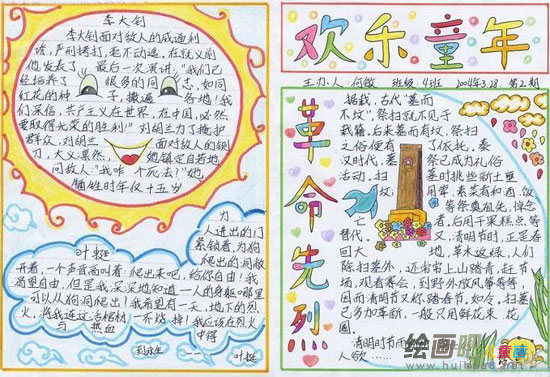 李大钊
李大钊面对敌人的威逼利
诱，严刑拷打，毫不动遥，在就义前
他发表了 最后一次演讲："我们已
经培养了 很多的同 志，如同
红花的种 子，撒遍 各地！我
们深信，共产主义在世界，在中国，必然
要取得光荣的胜利！"刘胡兰为了掩护
群众，刘胡兰 面对敌人的铡
刀，大义凛然， 她镇定自若地
问敌人："我咋 个死法？"她，
牺牲时年仅十五岁
叶挺
为
人进出的门
紧锁着，为狗
爬出的洞敞
开着，一个声音高叫着：爬出来吧，给你自由！我
渴望自由，但是我深深地知道——人的身躯哪里
可以从狗洞爬出！我希望有一天，地下的烈
火，将我连这活棺材 一齐烧掉！我应该在烈火
与 热血 中得
到永生 —— 叶挺
欢乐童年
主办人：何敏 班级：4班 2004年3.28. 第2期
革命先烈
据载，古代"墓而
不坟"，祭扫就不见于
载籍。后来墓而有坟，祭扫
之俗便有 了依托。秦
汉时代，墓 祭已成为礼俗
活动，扫 墓时挑些新土
坟 用荤、素菜有和酒、饭
等祭奠祖先，悼念
亡 者，后用干果糕点等
替代。 又，清明时节，正是春
回大 地，草木返绿，人们
除扫墓外，还常常上山踏青、赶节
场、观看赛会，到野外放风筝等等，
因而清明节又称踏春节。如今，扫墓
已多加革新，一般只用鲜花束、花
圈。
清明时节雨
人欲……
绘画吧
www.huihua8.net